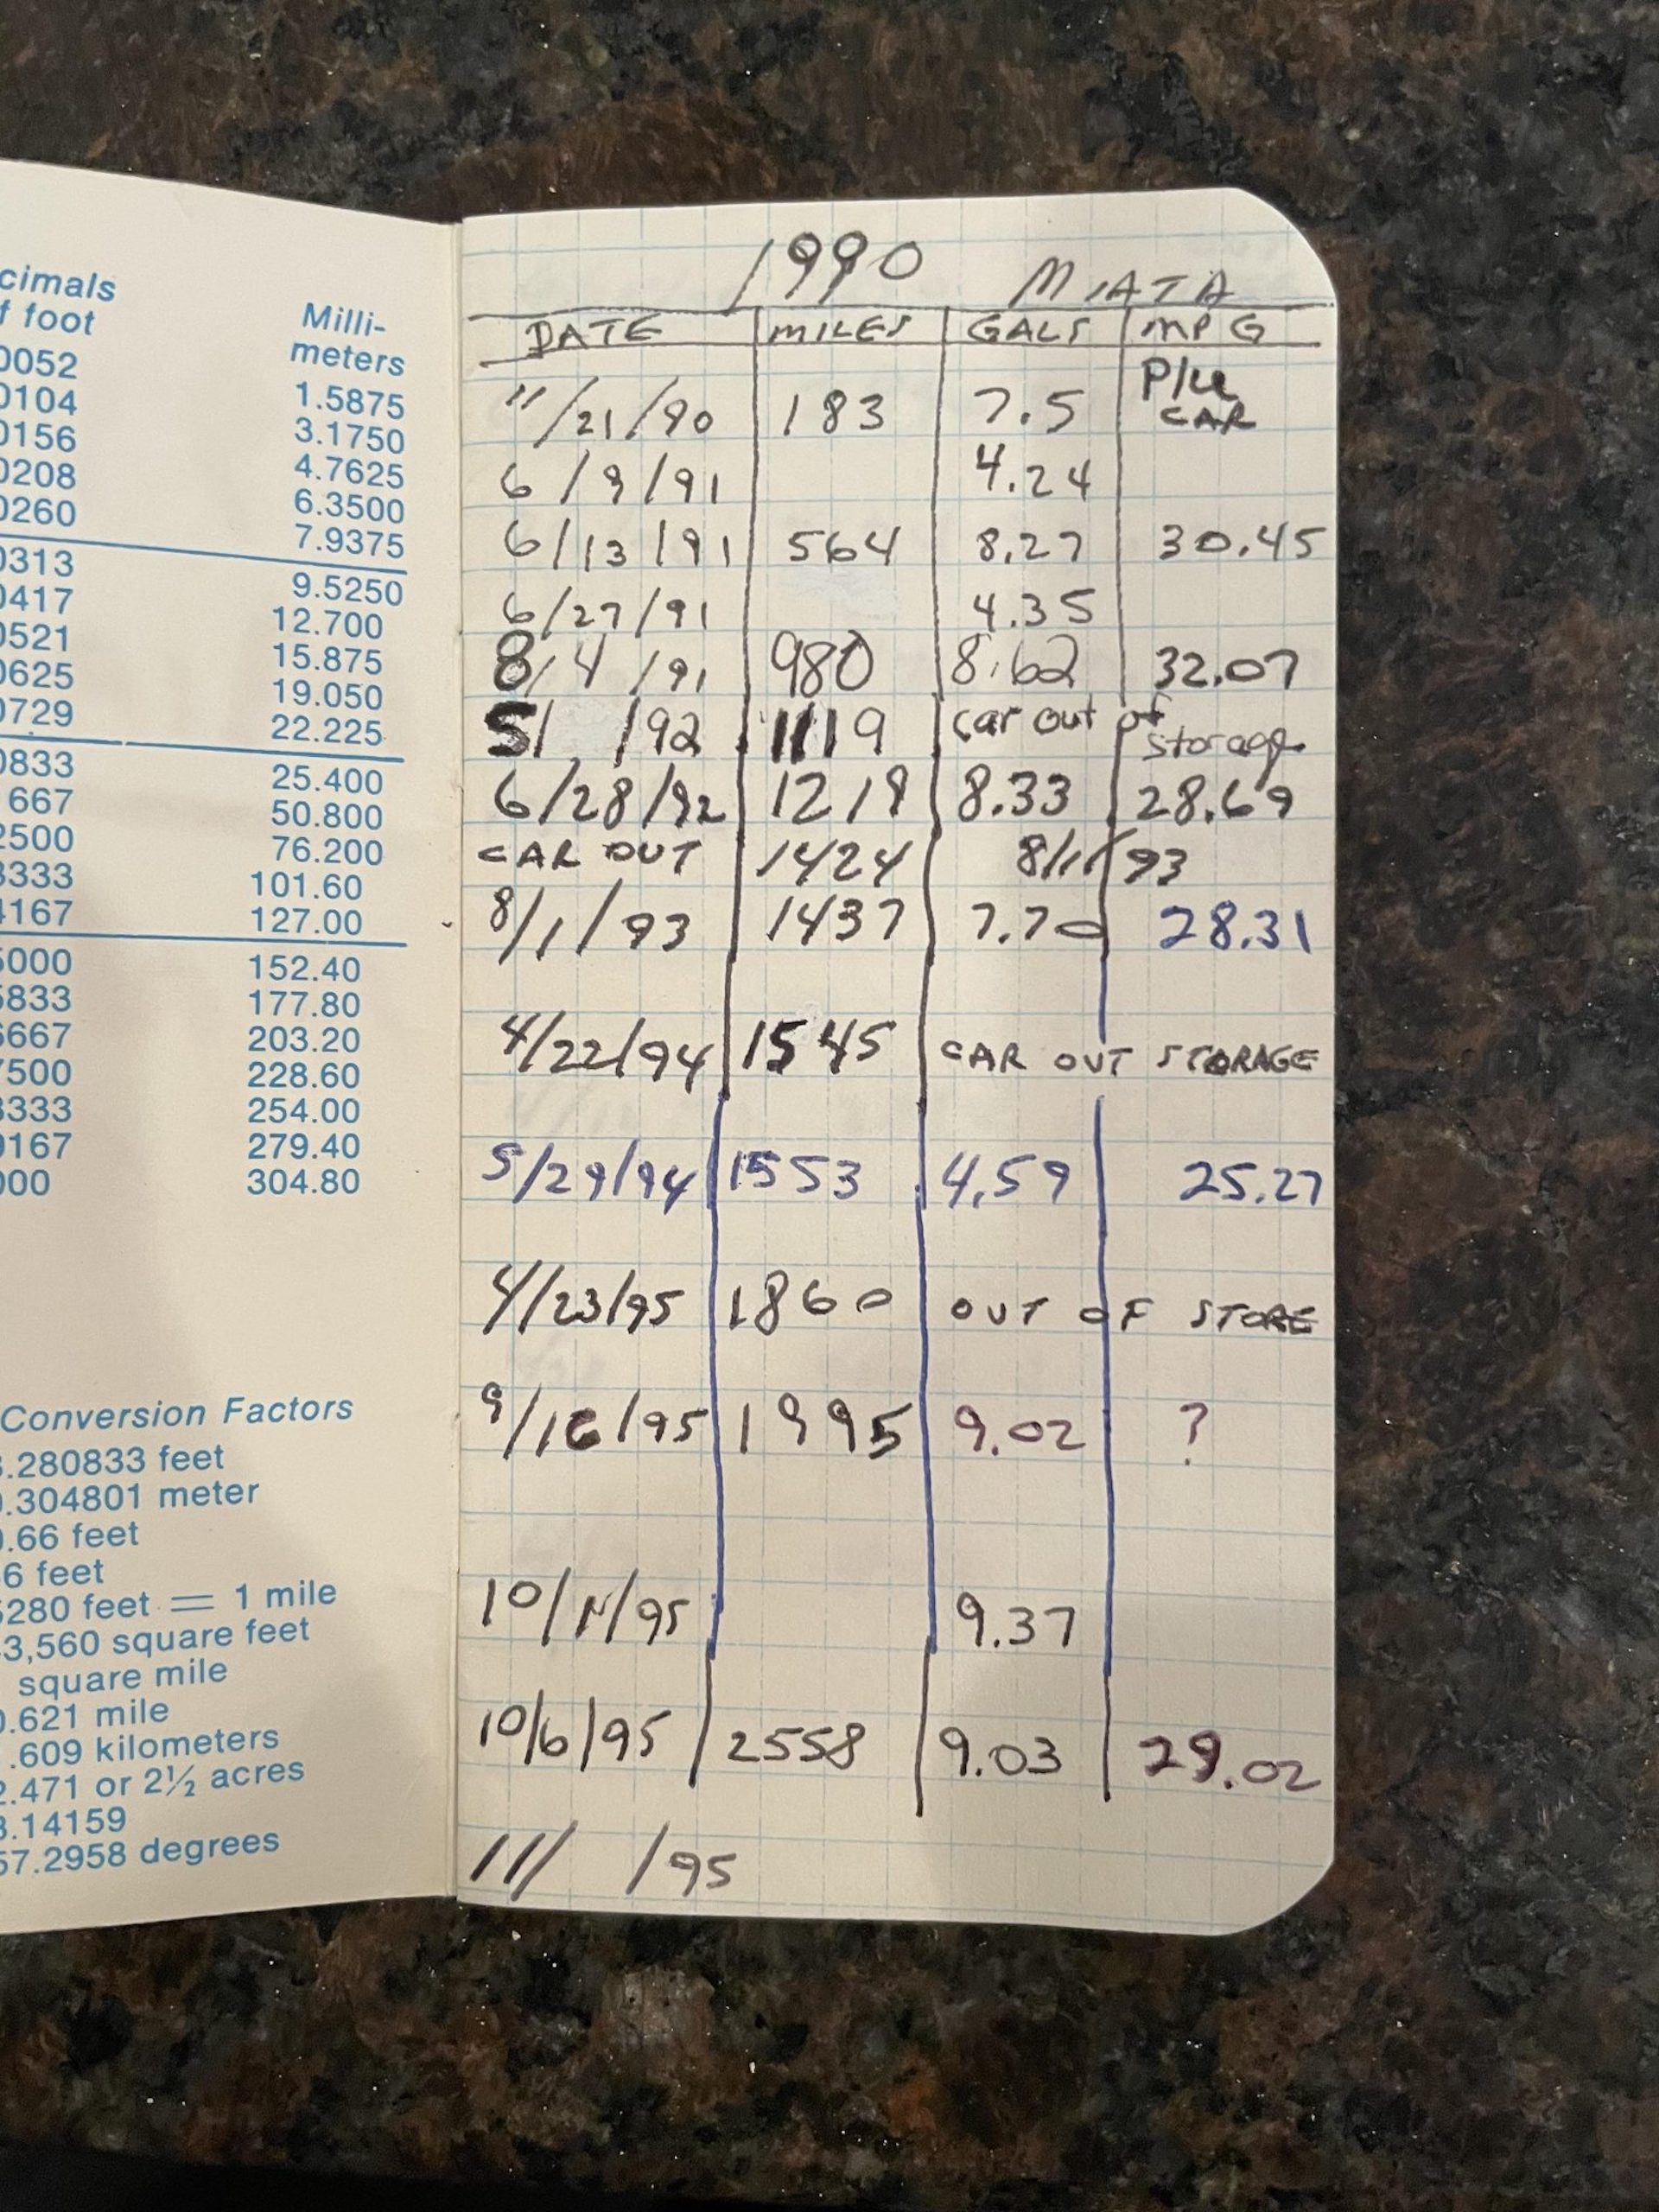 cimals
f foot
Milli-
meters
0052
1.5875
0104
3.1750
0156
4.7625
0208
6.3500
0260
7.9375
0313
9.5250
0417
12.700
0521
15.875
0625
19.050
0729
22.225
0833
25.400
667
50.800
2500
76.200
3333
101.60
4167
127.00
5000
152.40
5833
177.80
6667
203.20
7500
228.60
8333
254.00
9167
279.40
000
304.80
Conversion Factors
3.280833 feet
0.304801 meter
0.66 feet
6 feet
5280 feet = 1 mile
3,560 square feet
square mile
0.621 mile
.609 kilometers
2.471 or 2½ acres
3.14159
57.2958 degrees
1990 MIATA
DATE MILES GALS MPG
11/21/90 183 7.5 P/U CAR
6/9/91 4.24
6/13/91 564 8.27 30.45
6/27/91 4.35
8/4/91 980 8.62 32.07
5/ /92 1119 car out of storage
6/28/92 1219 8.33 28.69
CAR OUT 1424 8/1/93
8/1/93 1437 7.70 28.31
4/22/94 1545 CAR OUT STORAGE
5/29/94 1553 4.59 25.27
4/23/95 1860 OUT OF STORE
9/16/95 1995 9.02 ?
10/1/95 9.37
10/6/95 2558 9.03 29.02
11/ /95